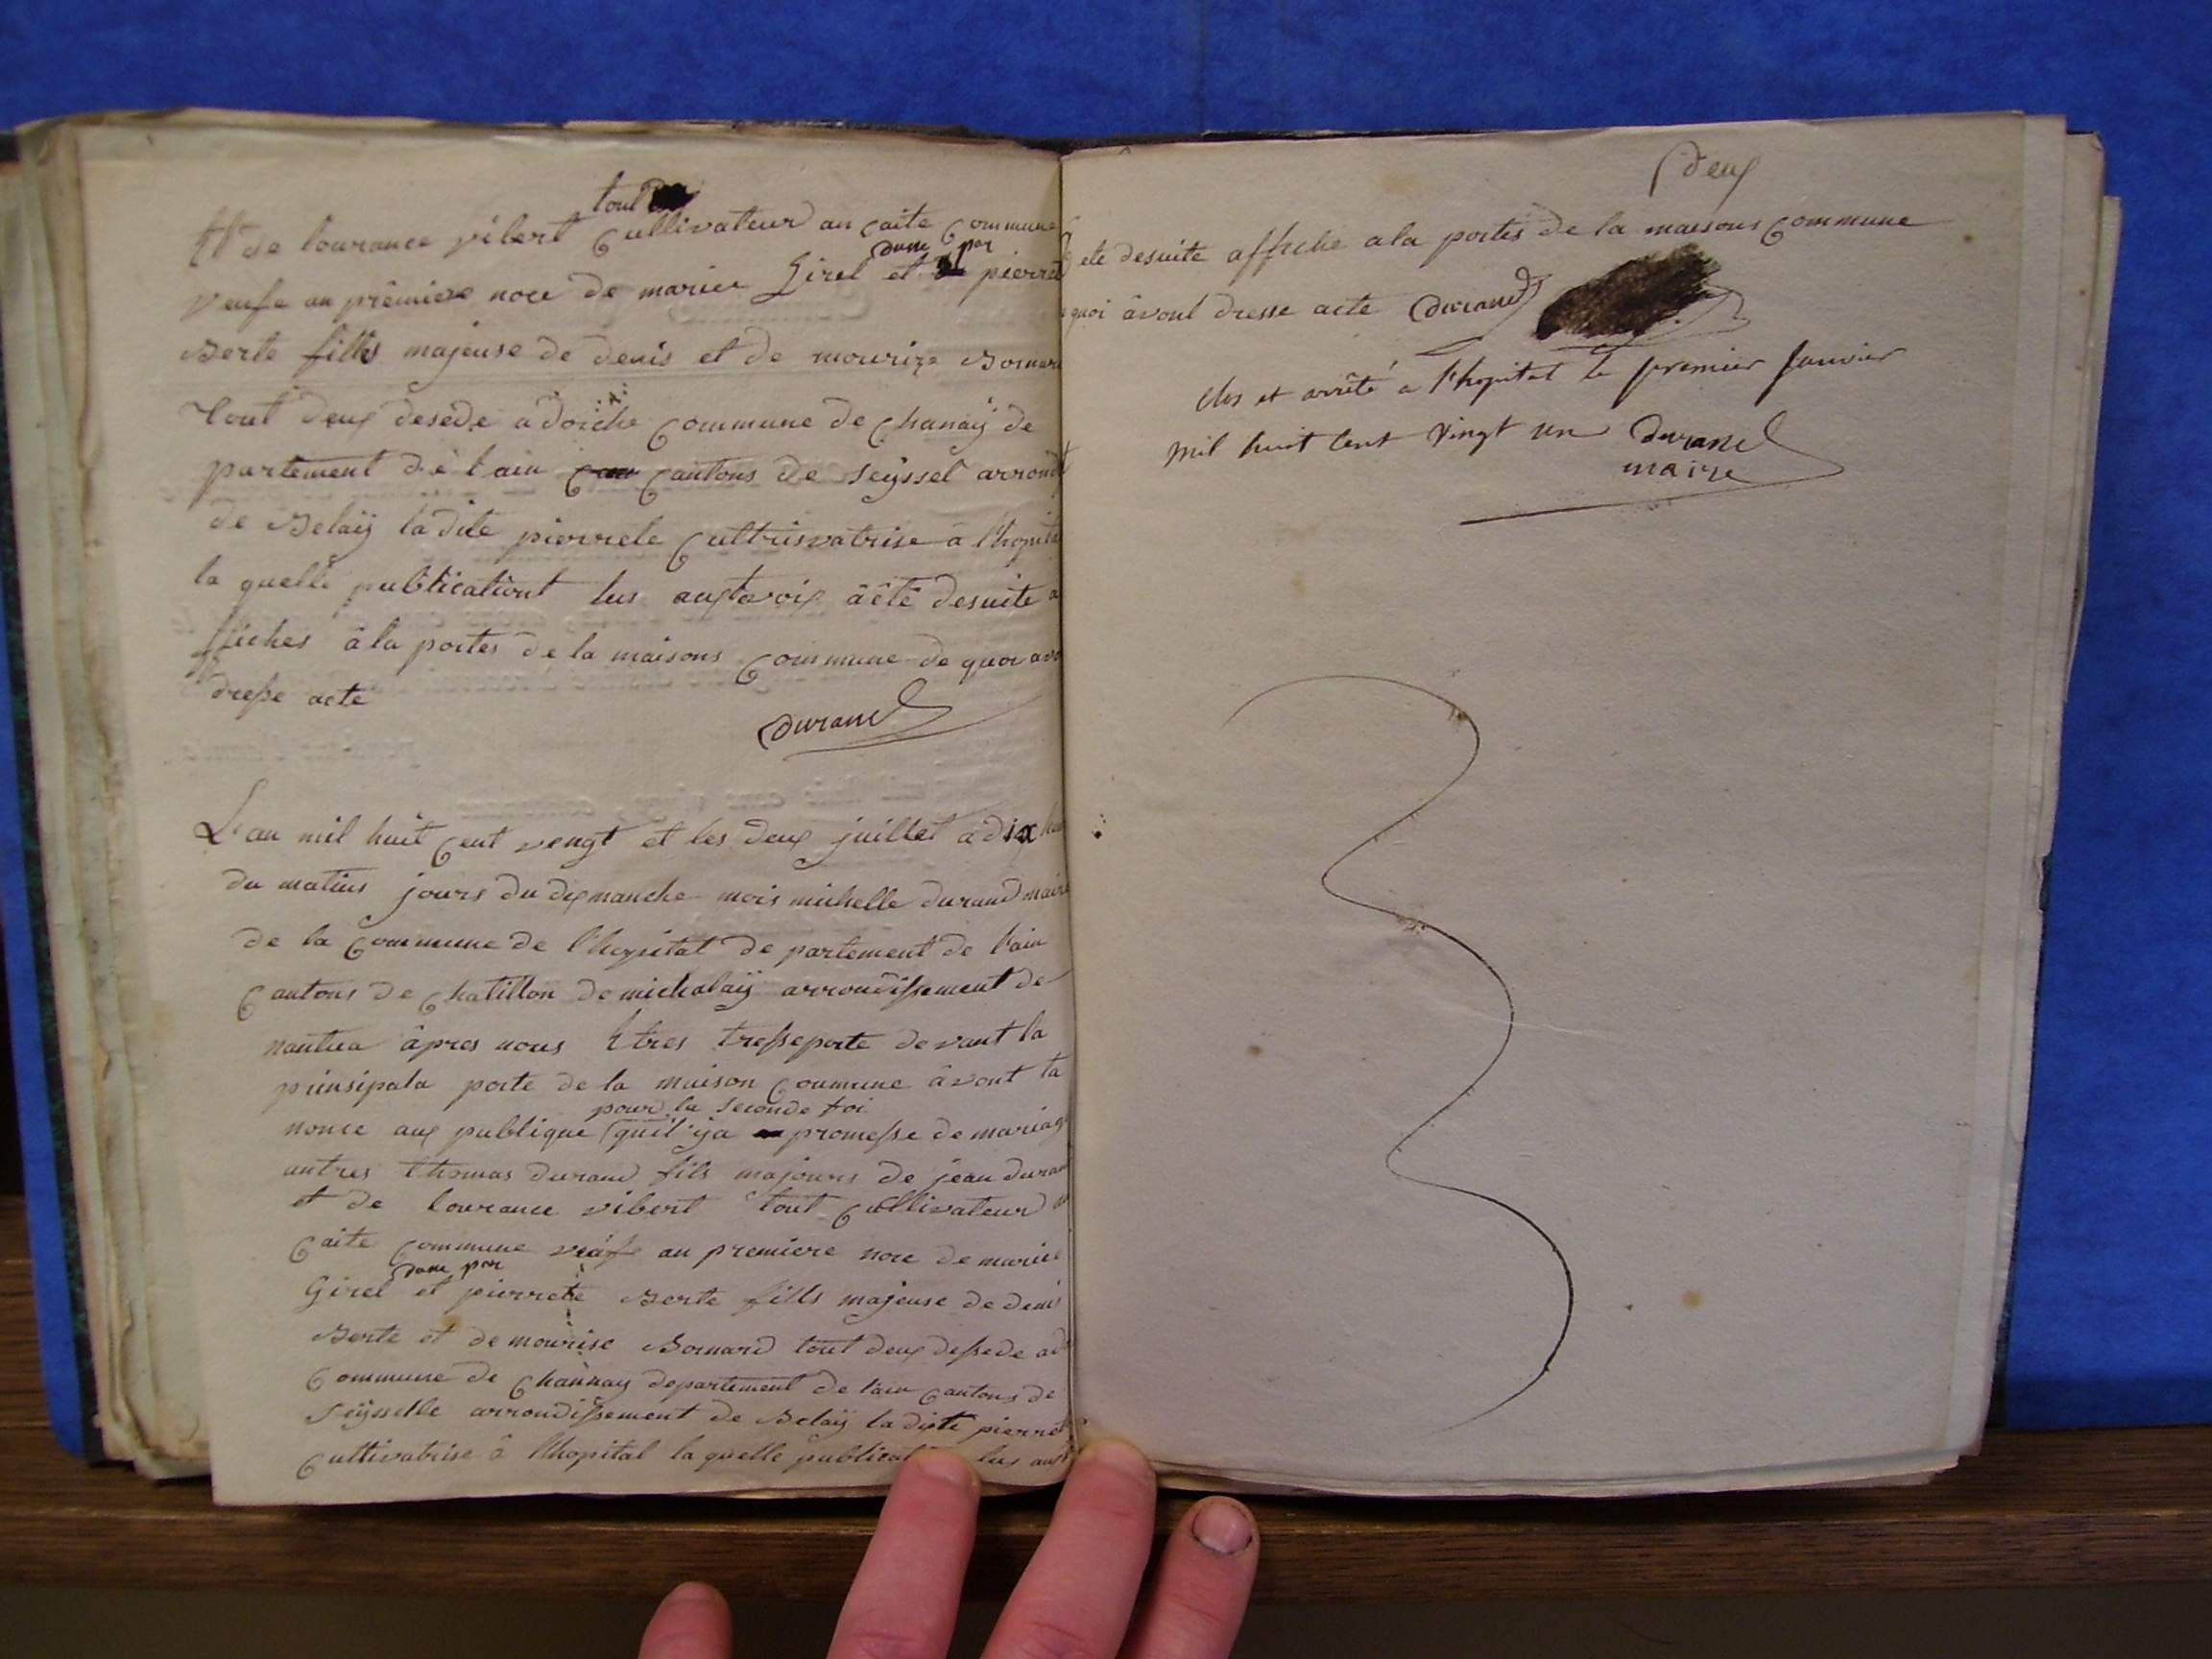 tout
Et de lourance vibert Cultivateur an caite Commune
dune par
veufe an prêmiere noce de marier Girel et pierrete
Berte filles majeuse de denis et de mourize Bornard
tout deux desede a dorche Commune de Chanaÿ de
partement de l'ain Cantons de seÿssel arrond
de Belaÿ la dite pierrete Cultrisvatrise a l'hopita
la quelle publicationt lus auxtevoix âêté desuite a
ffiches âla portes de la maisons Commune de quoi avo
dresse acte
durand
L'an mil huit Cent vengt et les deux juillet a dix heu
du matins jours du dixmanche mois michelle durand maire
de la Commune de l'hopital de partement de l'ain
Cantons de Chatillon de michalaÿ arrondissement de
nantua âpres nous Etres tressporte devant la
prinsipala porte de la maison Coumune âvont la
pour la seconde foi
nonce aux publique quil ÿa promesse de mariage
autres thomas durand fils majours de jean durand
et de lourance vibert tout Cultivateur
Caite Commune veufe an premiere noce de marie
dune par
Girel et pierrete Berte fills majeuse de deni
Berte et de mourise Bornard tout deux dessede ad
Commune de Channay departement de l'ain Cantons de
seÿsselle arrondissement de Belaÿ la dixte pierret
Cultivatrise â l'hopital la quelle publicat lus aux
deux
ete desuite affiche ala portes de la maisons Commune
quoi âvont dresse acte durand
Clos et arrêté a l'hopital le premier janvier
mil huit cent vingt un durand
maire